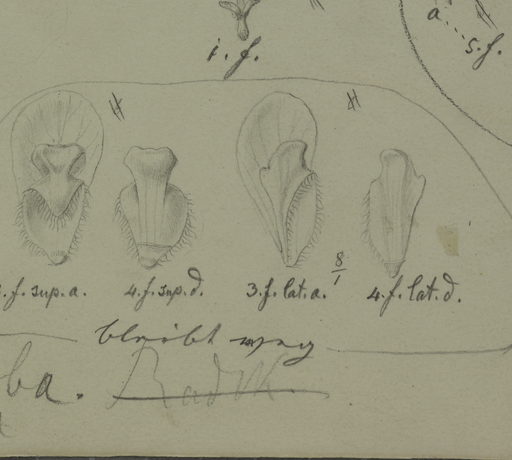 1. f.
a... 5. f.
8/1
f. sup. a. 4. f. sup. d. 3. f. lat. a. 4. f. lat. d.
bleibt weg
ba.